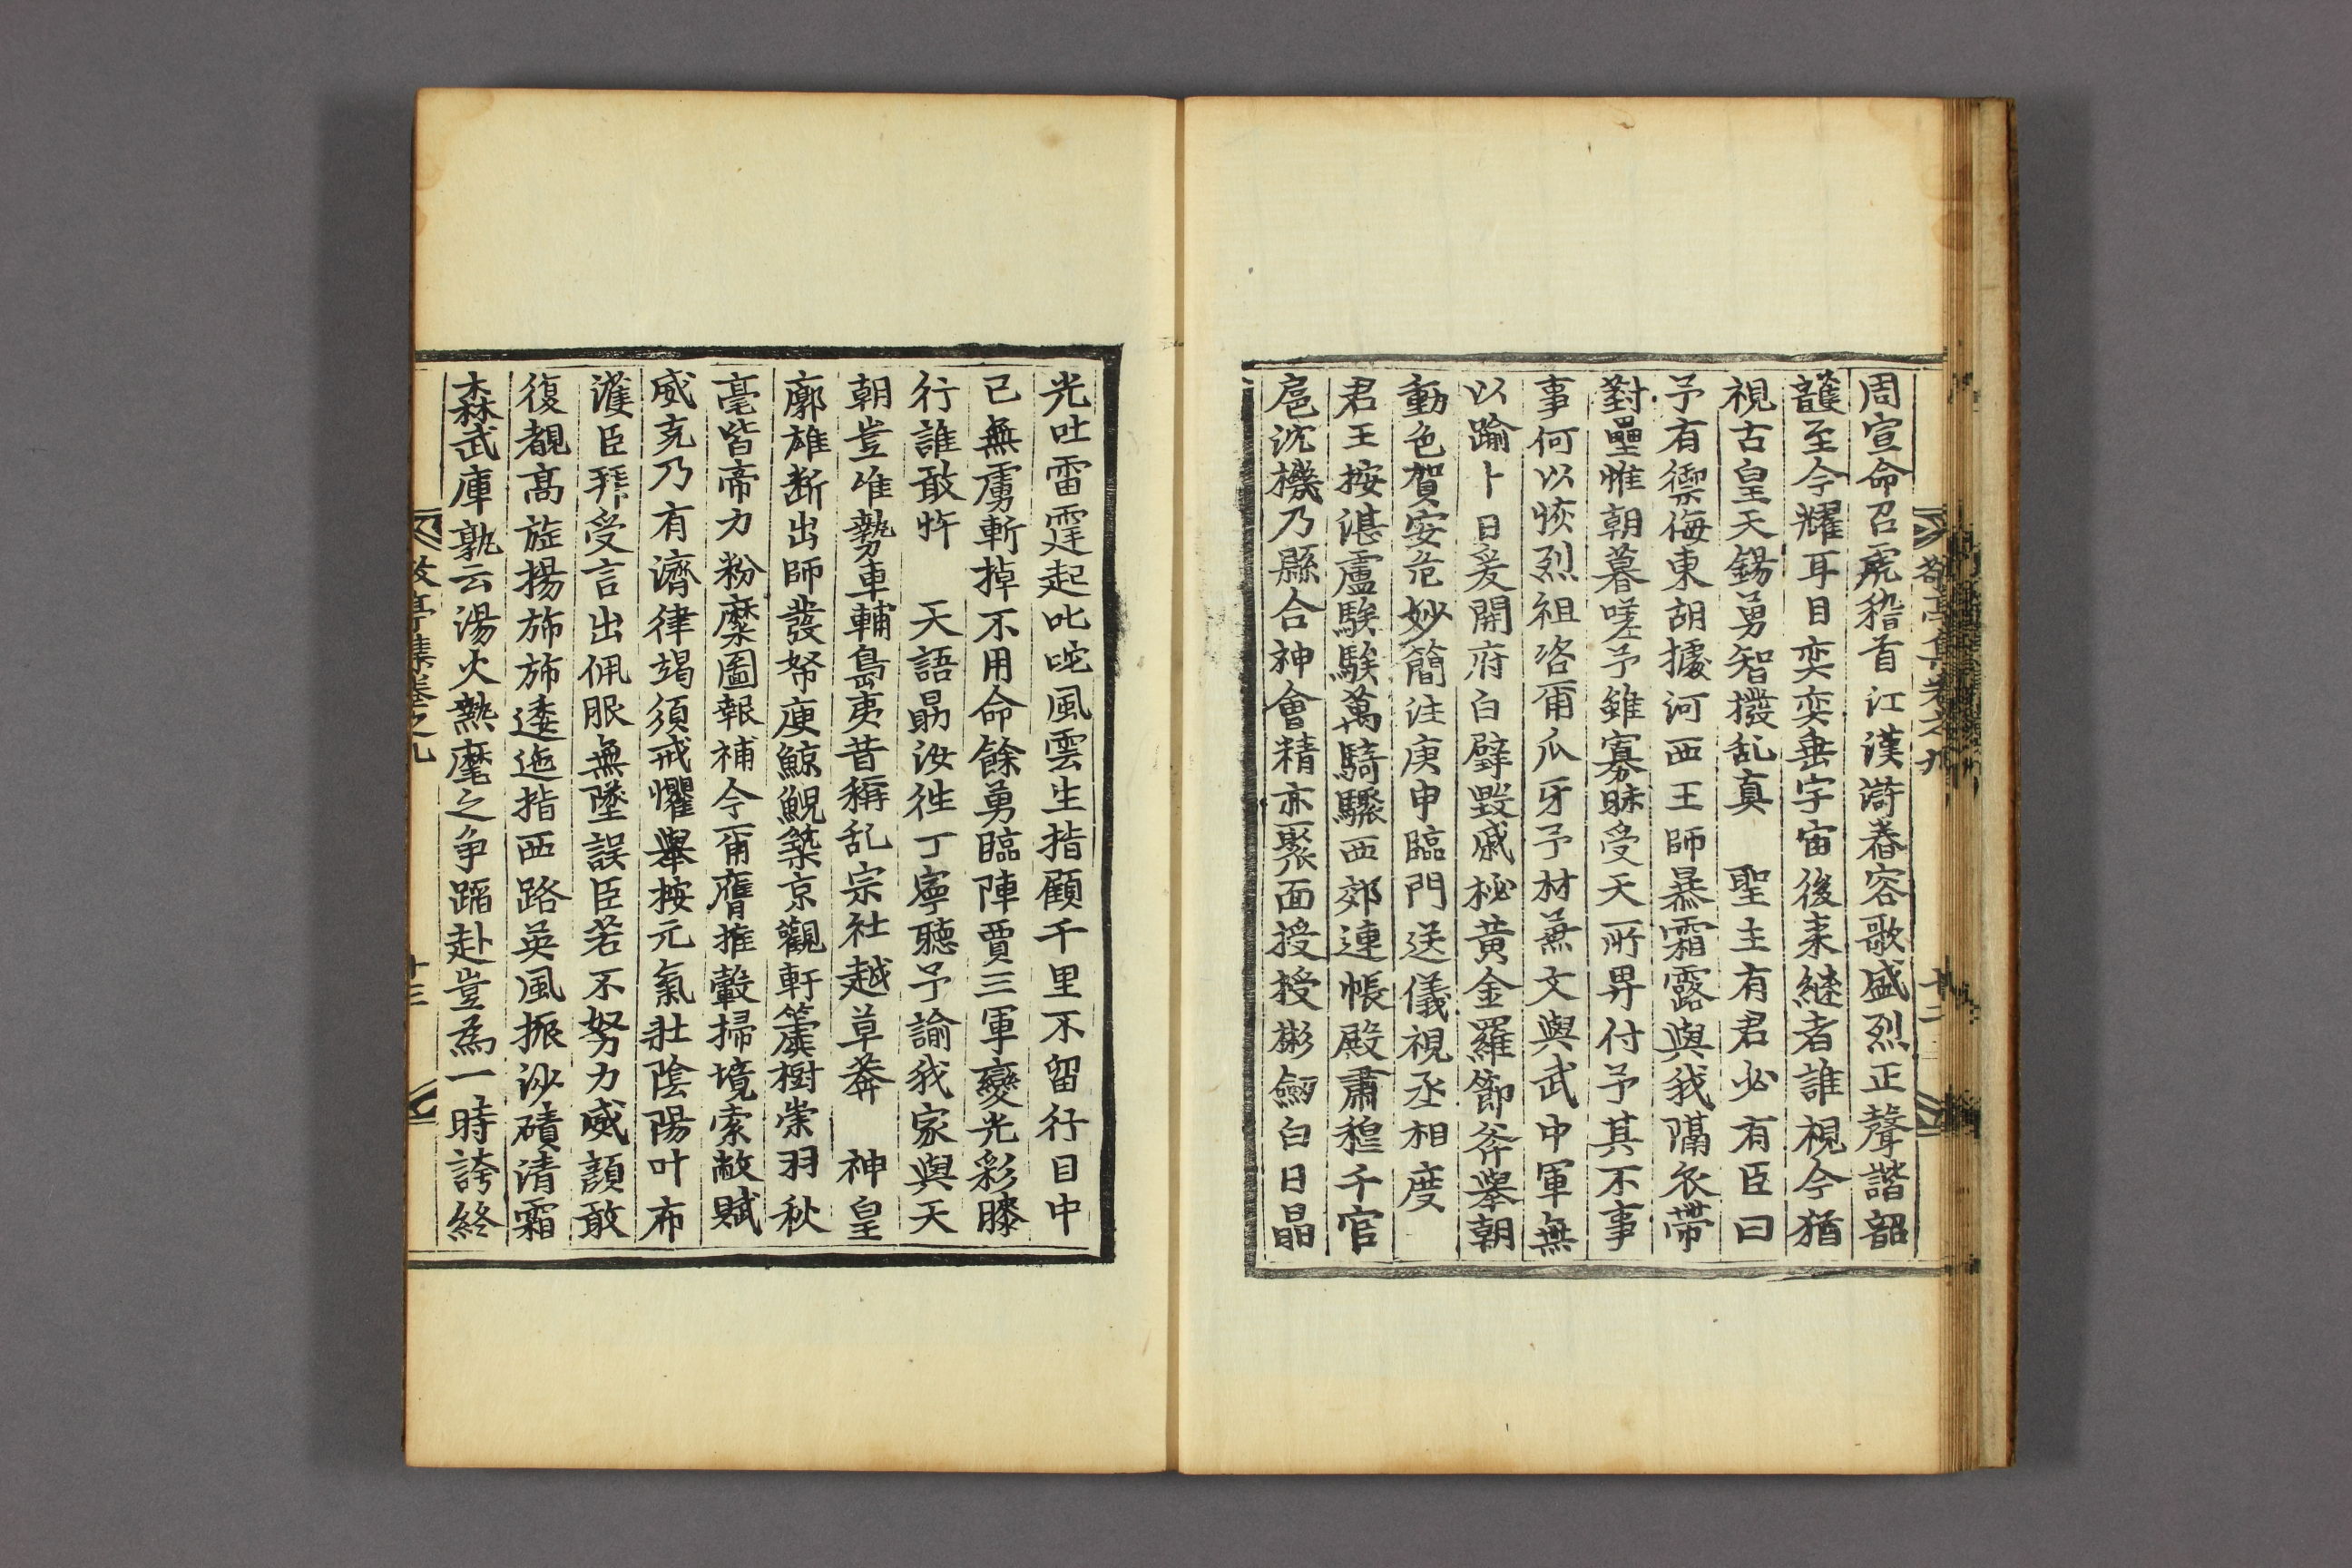 敬亭集卷之九 十二
周宣命召虎稽首江漢滸舂容歌盛烈正聲諧韶
頀至今耀耳目奕奕垂宇宙後来継者誰視今猶
視古皇天錫勇智撥乱真 聖主有君必有臣曰
予有禦侮東胡據河西王師暴霜露與我隔衣帶
對壘惟朝暮嗟予雖寡昧受天所畀付予其不事
事何以恢烈祖咨甫爪牙予材兼文與武中軍無
以踰卜日爰開府白璧毀戚柲黄金羅節斧擧朝
動色賀安危妙簡注庚申臨門送儀視丞相度
君王按湛盧騤騤萬騎驟西郊連帳殿肅穆千官
扈沈機乃縣合神會精亦聚面授授彬劒白日晶
光吐雷霆起叱咤風雲生指顧千里不留行目中
已無虜斬掉不用命餘勇臨陣賈三軍變光彩滕
行誰敢忤 天語勗汝徃丁寧聽予諭我家與天
朝豈惟勢車輔島夷昔稱乱宗社越草莽 神皇
廓雄断出師發帑庾鯨鯢築京觀軒簴樹崇羽秋
毫皆帝力粉糜圖報補今甫膺推轂掃境索敝賦
威克乃有濟律竭須戒懼擧按元氣壯陰陽叶布
濩臣拜受言出佩服無墜誤臣若不努力威顔敢
復覩高旌揚斾斾逶迤指西路英風振沙磧清霜
森武庫孰云湯火熱麾之争蹈赴豈為一時誇終
敬亭集卷之九 十三